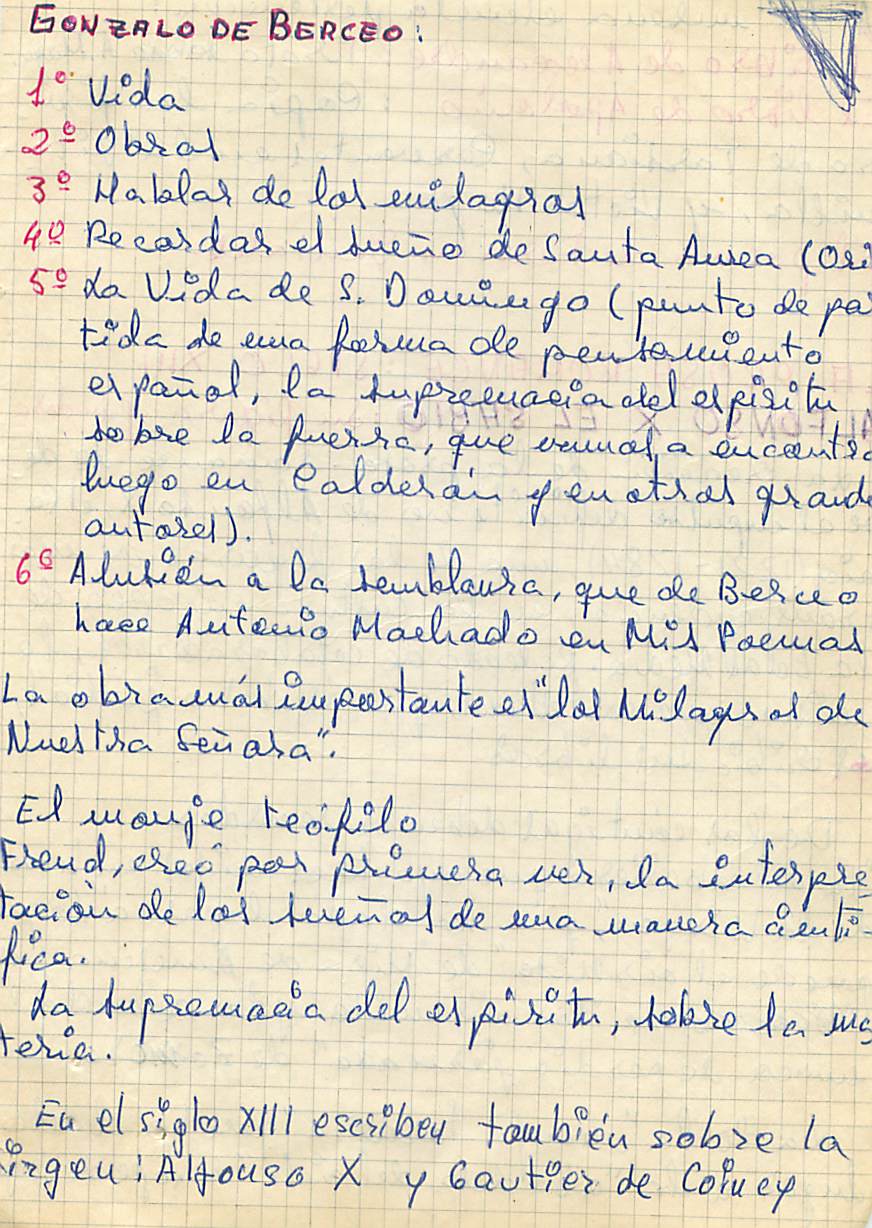 GONZALO DE BERCEO:
1º Vida
2º Obras
3º Hablar de los milagros
4º Recordar el sueño de Santa Aurea (Ori
5º La Vida de S. Domingo (punto de par
tida de una forma de pensamiento
español, la supremacia del espiritu
sobre la fuerza, que vamos a encontra
luego en Calderón y en otras grande
autores).
6º Alusión a la semblanza, que de Berceo
hace Antonio Machado en Mis Poemas
La obra más importante es "los Milagros de
Nuestra Señora".
El monje teófilo
Freud, creó por primera vez, la interpre
tación de los sueños de una manera cienti-
fica.
La supremacia del espiritu, sobre la ma
teria.
En el siglo XIII escriben también sobre la
irgen: Alfonso X y Gautier de Coincy